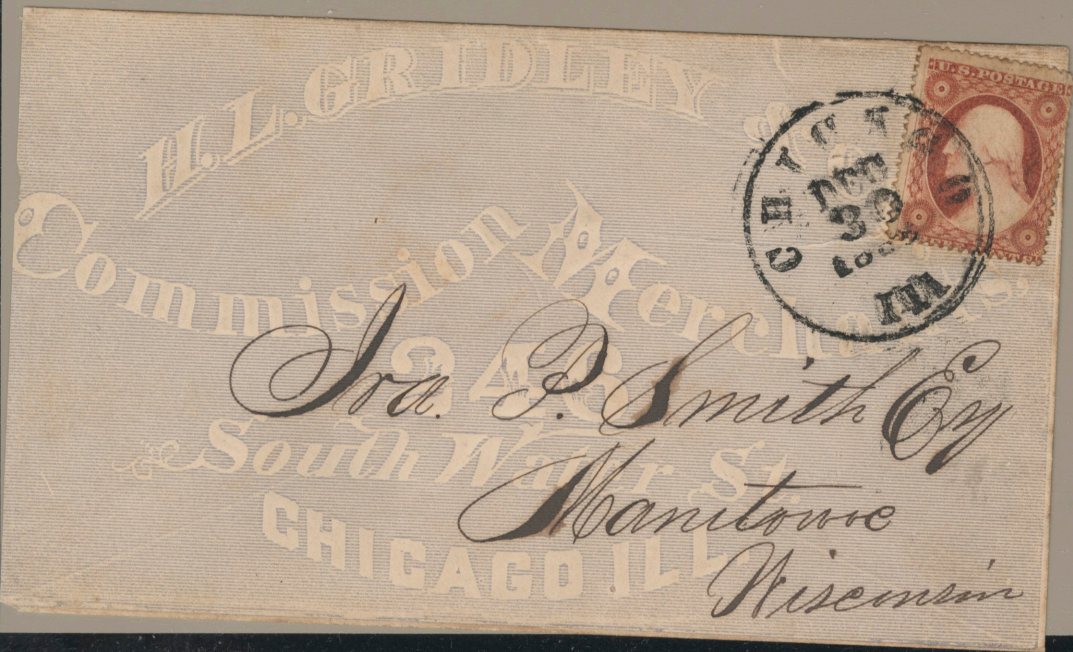 H. L. GRIDLEY &
Commission Merchants.
246
South Water St.
CHICAGO. ILL.
U.S. POSTAGE
CHICAGO
DEC
30
ILL
Ira. P. Smith Esq
Manitowoc
Wisconsin